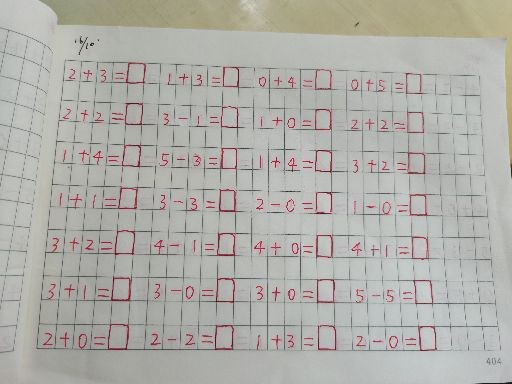 16/10
2+3=□ 1+3=□ 0+4=□ 0+5=□
2+2=□ 3-1=□ 1+0=□ 2+2=□
1+4=□ 5-3=□ 1+4=□ 3+2=□
1+1=□ 3-3=□ 2-0=□ 1-0=□
3+2=□ 4-1=□ 4+0=□ 4+1=□
3+1=□ 3-0=□ 3+0=□ 5-5=□
2+0=□ 2-2=□ 1+3=□ 2-0=□
404